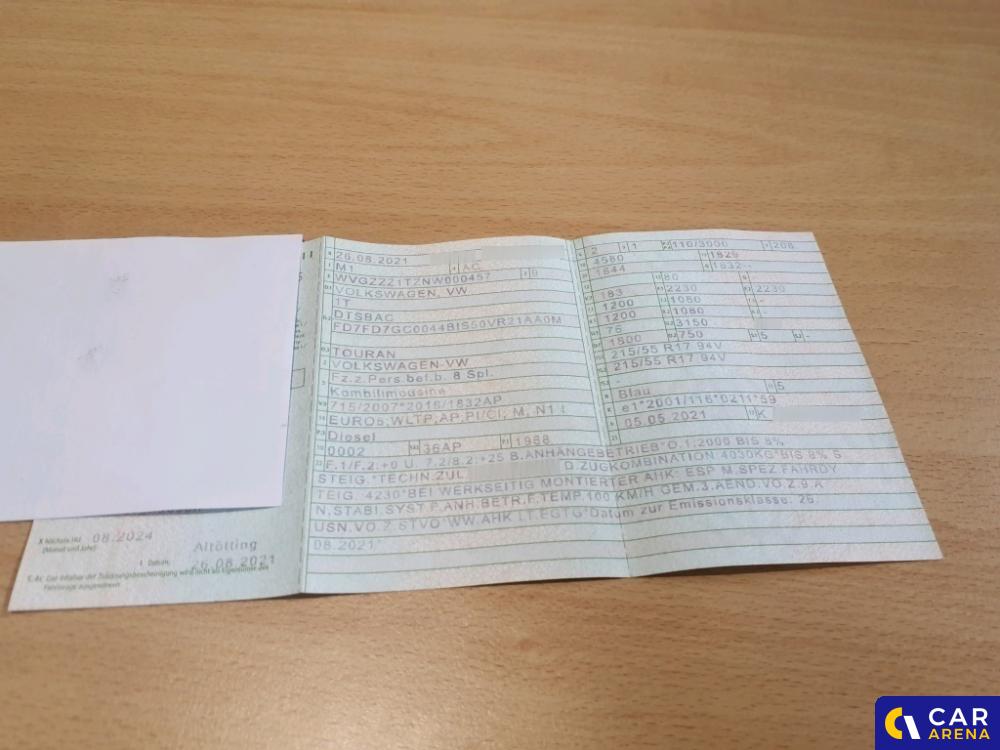 26.08.2021
M1 AC
WVGZZZ1TZNW000457 0
VOLKSWAGEN, VW
1T
DTSBAC
FD7FD7GC0044BIS50VR21AA0M
TOURAN
VOLKSWAGEN-VW
Fz.z.Pers.bef.b. 8 Spl.
Kombilimousine
715/2007*2018/1832AP
EURO6;WLTP;AP;PI/CI; M, N1 I
Diesel
0002 36AP 1968
2 1 110/3000 208
4580 1829
1644 1632--
80 -
183 2230 2230
1200 1080 -
1200 1080 -
76 3150
1800 750 5 -
215/55 R17 94V
215/55 R17 94V
-
Blau 5
e1*2001/116*0211*59
05.05.2021 K
F.1/F.2:+0 U. 7.2/8.2:+25 B.ANHÄNGEBETRIEB*O.1:2000 BIS 8%
STEIG.*TECHN.ZUL D.ZUGKOMBINATION 4030KG*BIS 8% S
TEIG. 4230*BEI WERKSEITIG MONTIERTER AHK: ESP M.SPEZ.FAHRDY
N.STABI.SYST.F.ANH.BETR.F.TEMP.100 KM/H GEM.3.AEND.VO.Z.9.A
USN.VO.Z.STVO*WW.AHK LT.EGTG*Datum zur Emissionsklasse: 26.
08.2021*
X Nächste HU (Monat und Jahr) 08.2024
Altötting
I Datum: 26.08.2021
C.4c Der Inhaber der Zulassungsbescheinigung wird nicht als Eigentümer des
Fahrzeugs ausgewiesen.
CAR
ARENA